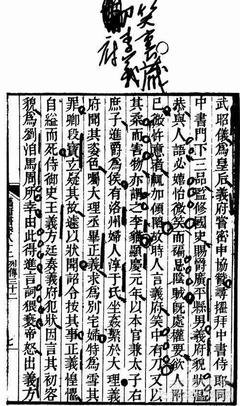 笑裏藏
李義
府
武昭儀為皇后義府嘗密申協贊尋擢拜中書侍郎同
中書門下三品監修國史賜爵廣平縣男義府貌狀溫
恭與人語必嬉怡微笑而褊忌陰賊既處權要欲人附
己微忤意者輒加傾陷故時人言義府笑中有刀又以
其柔而害物亦謂之李貓顯慶元年以本官兼太子右
庶子進爵為侯有洛州婦人淳于氏坐姦繫於大理義
府聞其姿色囑大理丞畢正義求為別宅婦特為雪其
罪卿段寶玄疑其故遽以狀聞詔令按其事正義惶懼
自縊而死侍御史王義方廷奏義府犯狀因言其初容
貌為劉洎馬周所幸由此得進言詞猥褻帝怒出義方